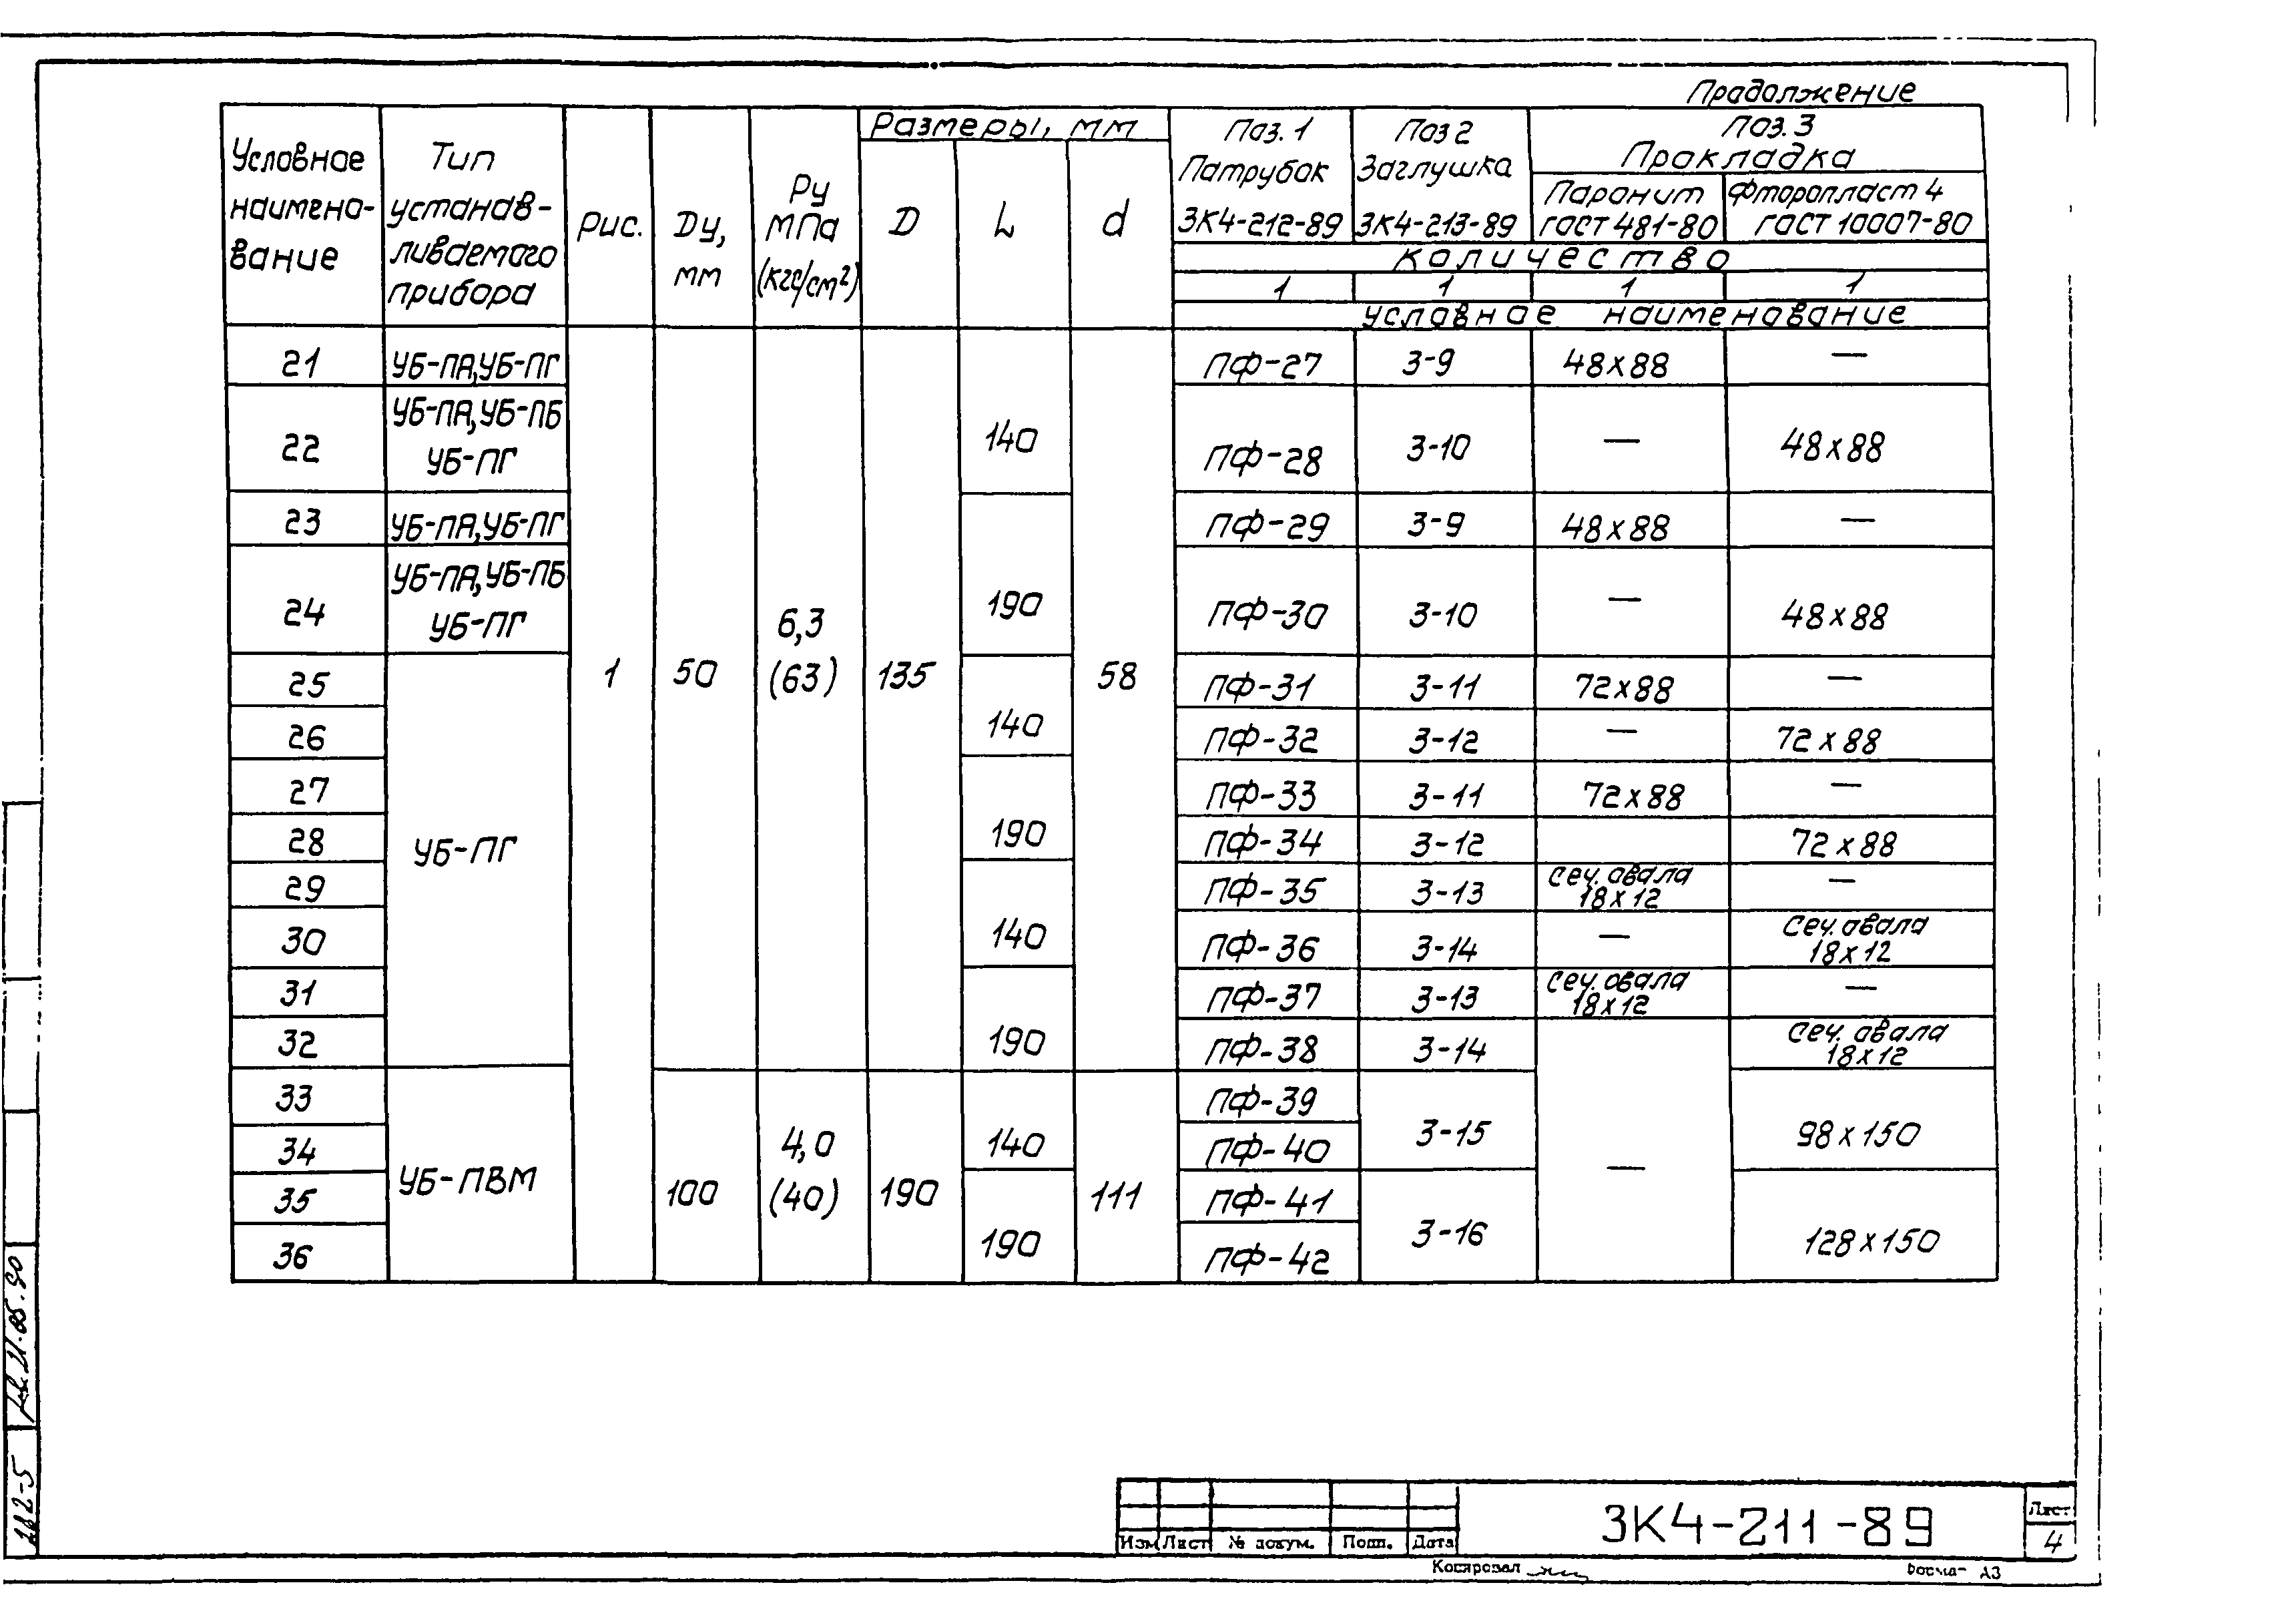 Продолжение
Условное наимено- вание
Тип устанав- ливаемого прибора
Рис.
Dу, мм
Ру МПа (кгс/см²)
Размеры, мм
D
L
d
Поз. 1 Патрубок ЗК4-212-89
Поз 2 Заглушка ЗК4-213-89
Поз. 3
Прокладка
Паронит ГОСТ 481-80
Фторопласт 4 ГОСТ 10007-80
Количество
1 1 1 1
Условное наименование
21 УБ-ПА,УБ-ПГ ПФ-27 З-9 48х88 —
22 УБ-ПА,УБ-ПБ УБ-ПГ 140 ПФ-28 З-10 — 48х88
23 УБ-ПА,УБ-ПГ ПФ-29 З-9 48х88 —
24 УБ-ПА,УБ-ПБ УБ-ПГ 190 ПФ-30 З-10 — 48х88
1 50 6,3 (63) 135 58
25 ПФ-31 З-11 72х88 —
26 140 ПФ-32 З-12 — 72х88
27 ПФ-33 З-11 72х88 —
28 УБ-ПГ 190 ПФ-34 З-12 72х88
29 ПФ-35 З-13 Сеч. овала 18х12 —
30 140 ПФ-36 З-14 — Сеч. овала 18х12
31 ПФ-37 З-13 Сеч. овала 18х12 —
32 190 ПФ-38 З-14 Сеч. овала 18х12
33 ПФ-39
34 140 ПФ-40 З-15 98х150
УБ-ПВМ 100 4,0 (40) 190 111 —
35 ПФ-41
36 190 ПФ-42 З-16 128х150
21.05.90
212-5
Изм Лист № докум. Подп. Дата
ЗК4-211-89
Лист
4
Копировал
Формат А3